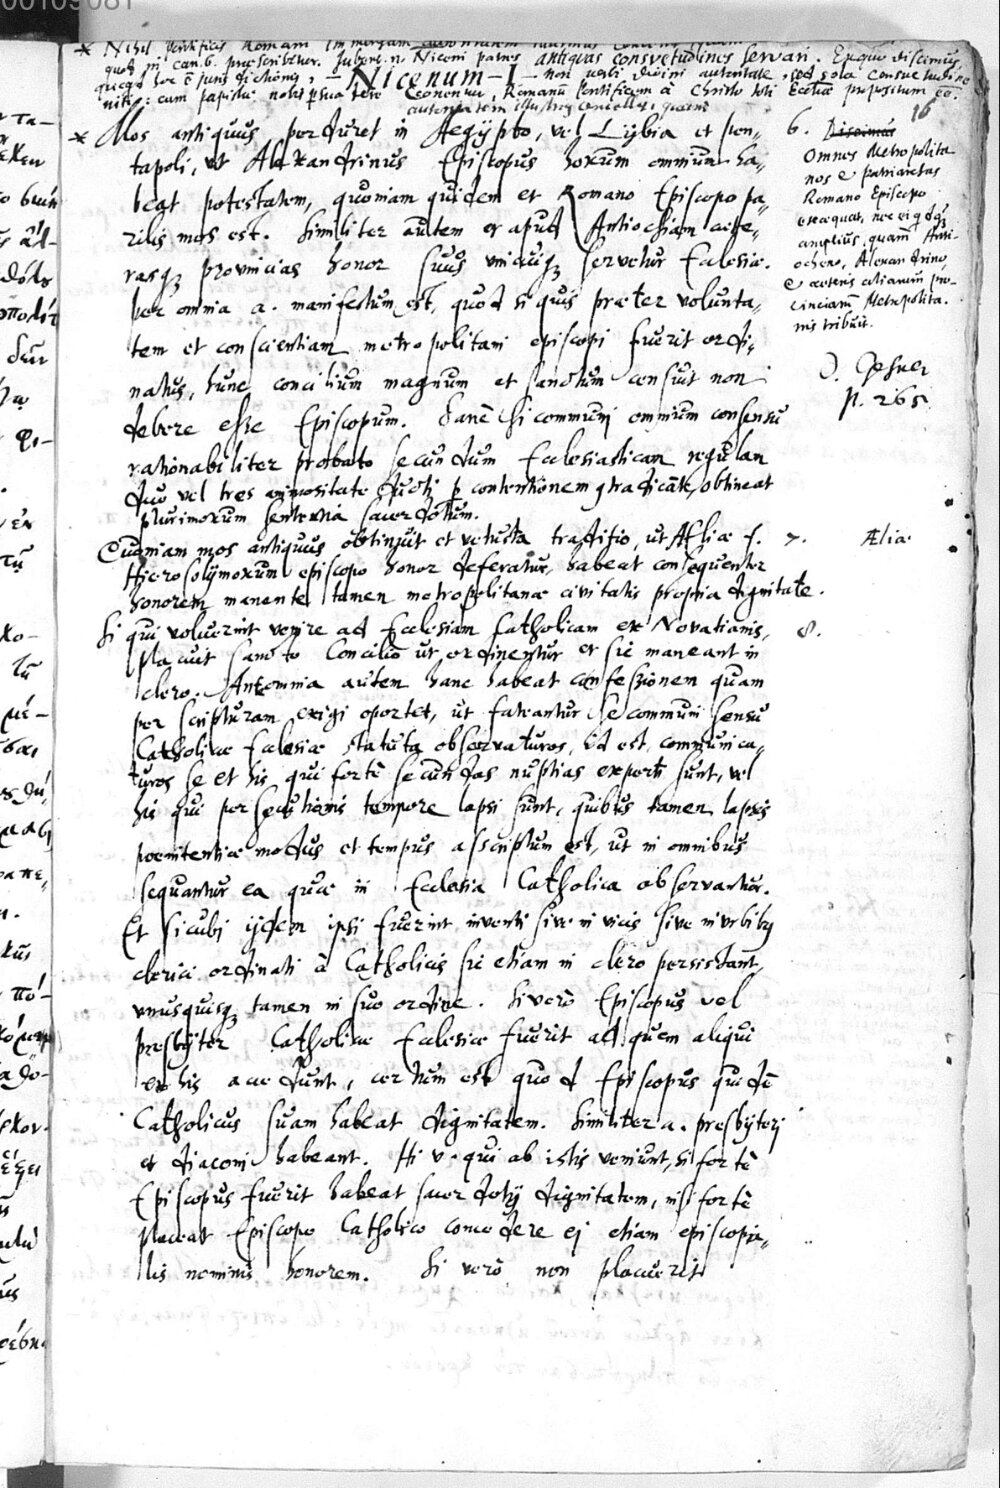 00109081
* Nihil Pontificis Romani
quod in can. 6. præscribitur. Jubent n. Niceni patres antiquas consvetudines servari. Ex quo discimus
non verbi divini autoritate, sed sola consuetudine
Nicenum - I -
niti: cum papistæ nobis persuadere conentur, Romanū Pontificem à Christo toti Ecclīæ propositum eē.
16
* Mos antiquus perduret in Aegÿpto, vel Lÿbia et pen-
tapoli, ut Alexandrinus Episcopus horum omnium ha-
beat potestatem, quoniam quidem et Romano Episcopo pa-
rilis mos est. Similiter autem et apud Antiochiam cæte-
rasq; provincias honor suus unicuiq; servetur Ecclesiæ.
per omnia a. manifestum est, quod si quis præter volunta-
tem et conscientiam metropolitani episcopi fuerit ordi-
natus, hunc concilium magnum et sanctum censuit non
debere esse Episcopum. Sanè si communi omnium consensu
rationabiliter probato secundum Ecclesiasticam regulam
duo vel tres animositate ducti p contentionem contradicāt, obtineat
plurimorum sententia sacerdotum.
6. Discimus
Omnes Metropolita
nos & patriarchas
Romano Episcopo
exæquat, nec ei qdq;
amplius, quam Anti-
ocheno, Alexandrino,
& cæteris aliarum pro-
vinciarū Metropolita.
nis tribuit.
D. Gesner
p. 265.
Quoniam mos antiquus obtinuit et vetusta traditio, ut Æliæ f. 7. Ælia
Hierosolÿmorum episcopo honor deferatur, habeat consequenter
honorem manente tamen metropolitanæ civitatis propria dignitate.
Si qui voluerint venire ad Ecclesiam Catholicam ex Novatianis, 8.
placuit sancto Concilio ut ordinentur et sic maneant in
clero. Ante omnia autem hanc habeat confessionem quam
per scripturam exigi oportet, ut fateantur se communi sensu
Catholicæ Ecclesiæ statuta observaturos, id est, communica-
turos se et his qui fortè secundas nuptias experti sunt, vel
his qui persecutionis tempore lapsi sunt, quibus tamen lapsis
poenitentiæ modus et tempus asscriptum est, ut in omnibus
sequantur ea quæ in Ecclesia Catholica observantur.
Et sicubj ijdem ipsi fuerint inventi sive in vicis sive in urbibus
clerici ordinati à Catholicis sic etiam in clero persistant,
unusquisq; tamen in suo ordine. Si verò Episcopus vel
presbÿter Catholicæ Ecclesiæ fuerit ad quem aliqui
ex his accedunt, certum est quod Episcopus quidē
Catholicus suam habeat dignitatem. Similiter a. presbÿterj
et diaconi habeant. Hi v. qui ab istis veniunt, si fortè
Episcopus fuerit habeat sacerdotij dignitatem, nisi fortè
placeat Episcopo Catholico concedere ej etiam episcopa-
lis nominis honorem. Si verò non placuerit